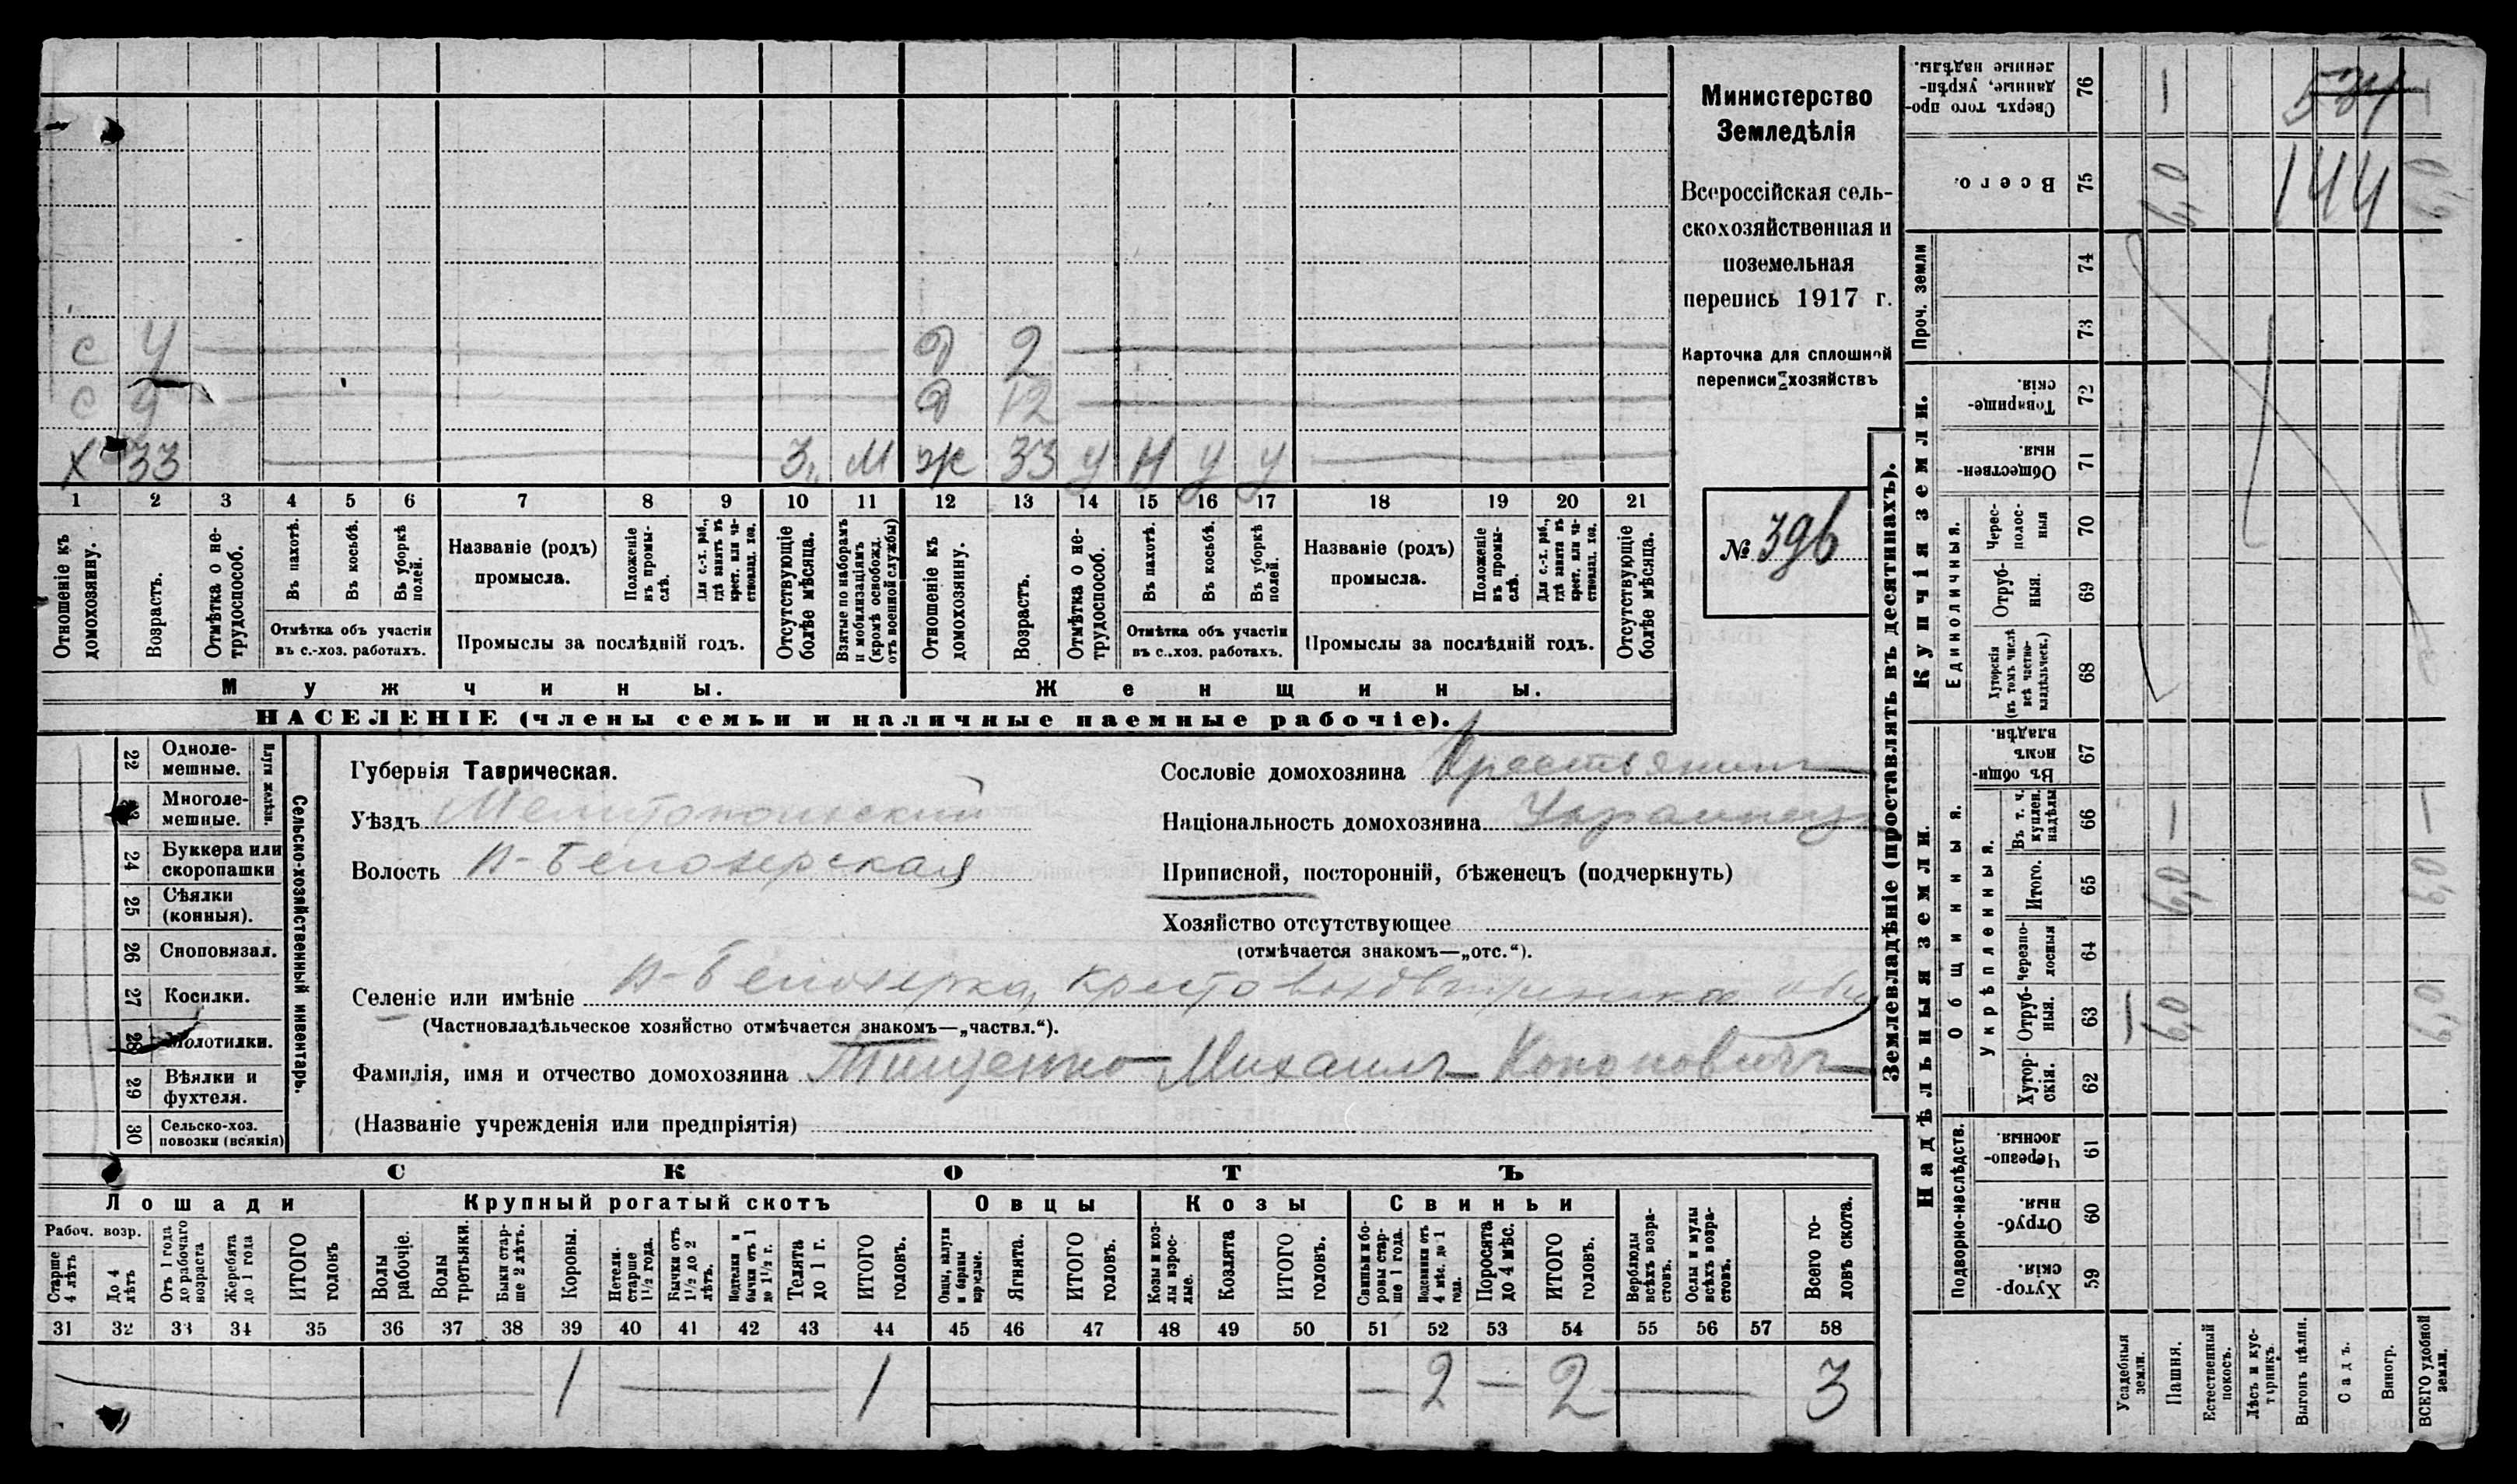 с 4 д 2
с 9 д 12
х 33 3 м ж 33 у н у у
1 2 3 4 5 6 7 8 9 10 11 12 13 14 15 16 17 18 19 20 21
Отношеніе къ домохозяину.
Возрастъ.
Отмѣтка о нетрудоспособ.
Въ пахотѣ.
Въ косьбѣ.
Въ уборкѣ полей.
Отмѣтка объ участіи
въ с.-хоз. работахъ.
Названіе (родъ)
промысла.
Положеніе въ промыслѣ.
Для с.-х. раб., гдѣ занятъ въ крест. или частновлад. хоз.
Промыслы за послѣдній годъ.
Отсутствующіе болѣе мѣсяца.
Взятые по наборамъ и мобилизаціямъ (кромѣ освобожд. отъ военной службы)
Отношеніе къ домохозяину.
Возрастъ.
Отмѣтка о нетрудоспособ.
Въ пахотѣ.
Въ косьбѣ.
Въ уборкѣ полей.
Отмѣтка объ участіи
въ с..хоз. работахъ.
Названіе (родъ)
промысла.
Положеніе въ промыслѣ.
Для с.-х. раб., гдѣ занята въ крест. или частновлад. хоз.
Промыслы за послѣдній годъ.
Отсутствующіе болѣе мѣсяца.
Мужчины.
Женщины.
НАСЕЛЕНІЕ (члены семьи и наличные наемные рабочіе).
Министерство
Земледѣлія
Всероссійская сель-
скохозяйственная и
поземельная
перепись 1917 г.
Карточка для сплошной
переписи хозяйствъ
№ 396
Сельско-хозяйственный инвентарь.
Плуги желѣзн.
22 Одноле-
мешные.
23 Многоле-
мешные.
24 Буккера или
скоропашки
25 Сѣялки
(конныя).
26 Сноповязал.
27 Косилки.
28 Молотилки.
29 Вѣялки и
фухтеля.
30 Сельско-хоз.
повозки (всякія)
Губернія Таврическая.
Уѣздъ Мелитопольскій
Волость В-Белозерская
Сословіе домохозяина Крестьянинъ
Національность домохозяина Украинецъ
Приписной, посторонній, бѣженецъ (подчеркнуть)
Хозяйство отсутствующее
(отмѣчается знакомъ—„отс.“).
Селеніе или имѣніе В-Белозерка, Крестовоздвиженское общ
(Частновладѣльческое хозяйство отмѣчается знакомъ—„частвл.“).
Фамилія, имя и отчество домохозяина Тищенко Михаилъ Кононовичъ
(Названіе учрежденія или предпріятія)
СКОТЪ
Лошади
Рабоч. возр.
Старше 4 лѣтъ
До 4 лѣтъ
Отъ 1 года до рабочаго возраста
Жеребята до 1 года
ИТОГО головъ
Крупный рогатый скотъ
Волы рабочіе.
Волы третьяки.
Быки старше 2 лѣтъ.
Коровы.
Нетели старше 1½ года.
Бычки отъ 1½ до 2 лѣтъ.
Подтелки и бычки отъ 1 до 1½ г.
Телята до 1 г.
ИТОГО головъ.
Овцы
Овцы, валухи и бараны взрослые.
Ягнята.
ИТОГО головъ.
Козы
Козы и козлы взрослые.
Козлята
ИТОГО головъ.
Свиньи
Свиньи и боровы старше 1 года.
Подсвинки отъ 4 мѣс. до 1 года.
Поросята до 4 мѣс.
ИТОГО головъ.
Верблюды всѣхъ возрастовъ.
Ослы и мулы всѣхъ возрастовъ.
Всего головъ скота.
31 32 33 34 35 36 37 38 39 40 41 42 43 44 45 46 47 48 49 50 51 52 53 54 55 56 57 58
1 1 2 2 3
Землевладѣніе (проставлять въ десятинахъ).
Купчія земли.
Надѣльныя земли.
Проч. земли
Сверхъ того проданные, укрѣпленные надѣлы. 76
Всего. 75
74
73
Товарищескія. 72
Общественныя. 71
Единоличныя.
Чересполосныя 70
Отрубныя. 69
Хуторскія (въ томъ числѣ всѣ частновладѣльческ.) 68
Общинныя.
Въ общинномъ владѣн. 67
Укрѣпленныя.
Въ т. ч. куплен. надѣлы 66
Итого. 65
Черезполосныя 64
Отрубныя. 63
Хуторскія. 62
Подворно-наслѣдств.
Черезполосныя. 61
Отрубныя. 60
Хуторскія. 59
Усадебныя земли.
Пашня.
Естественный покосъ.
Лѣсъ и кустарникъ.
Выгонъ цѣлин.
Садъ.
Виногр.
ВСЕГО удобной земли.
144
6,0 6,0
6,0 6,0
6,0 6,0